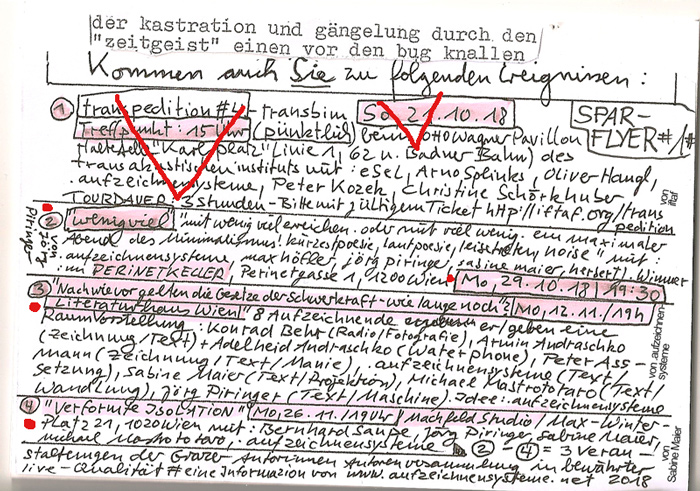 der kastration und gängelung durch den
"zeitgeist" einen vor den bug knallen
Kommen auch Sie zu folgenden Ereignissen:
① transpedition #4 - transbim, So, 21.10.18
SPAR-
FLYER #/#
Treffpunkt: 15 Uhr (pünktlich) beim Otto Wagner Pavillon
Haltestelle "Karlsplatz" Linie 1, 62 u. Badner Bahn) des
transakustischen instituts mit: eSeL, Arno Splinks, Oliver Hangl,
.aufzeichnensysteme, Peter Kozek, Christine Schörkhuber,
TOURDAUER: 3 Stunden - Bitte mit gültigem Ticket http://iftaf.org/trans
pedition
von iftaf
② "wenigviel" mit wenig viel erreichen. oder mit viel wenig. ein maximaler
Abend des Minimalismus! kürzestpoesie, lautpoesie, leisestes noise" mit:
.aufzeichnensysteme, max höfler, jörg piringer, sabine maier, herbert j. Wimmer
im PERINETKELLER, Perinetgasse 1, 1200 Wien Mo, 29.10.18 | 19:30
von jörg Piringer
③ "Nach wie vor gelten die Gesetze der Schwerkraft - wie lange noch?" Mo, 12.11. / 19h
Literaturhaus Wien" 8 Aufzeichnende er/geben eine
Raumvorstellung: Konrad Behr (Radio/Fotografie), Armin Andraschko
(Zeichnung/Text) + Adelheid Andraschko (Waterphone), Peter Ass-
mann (Zeichnung/Text/Manie), .aufzeichnensysteme (Text/
Setzung), Sabine Maier (Text/Projektion), Michael Mastrototaro (Text/
Wandlung), Jörg Piringer (Text/Maschine). Idee: .aufzeichnensysteme
von .aufzeichnen-
systeme
④ "VERFORMTE ISOLATION" Mo, 26.11. /19Uhr / Machfeld Studio / Max-Winter-
Platz 21, 1020 Wien mit: Bernhard Saupe, Jörg Piringer, Sabine Maier,
michael Mastrototaro, .aufzeichnensysteme ② - ④ = 3 Veran-
staltungen der Grazer Autorinnen Autorenversammlung in bewährter
live-Qualität # eine Information von www.aufzeichnensysteme.net 2018
von
Sabine Maier